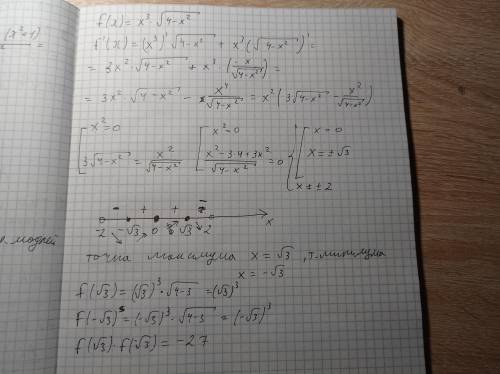 (x²+1)
=
f(x) = x³·√(4-x²)
f'(x) = (x³)'·√(4-x²) + x³(√(4-x²))' =
= 3x²·√(4-x²) + x³·(-x/√(4-x²)) =
= 3x²·√(4-x²) - x⁴/√(4-x²) = x²(3√(4-x²) - x²/√(4-x²))
[ x²=0 [ x²=0 { [ x=0
3√(4-x²) = x²/√(4-x²) (x²-3·4+3x²)/√(4-x²) = 0 x=±√3
x≠±2
- + + -
-2 -√3 0 √3 2 x
точка максимума x = √3, т. минимума
x = -√3
f(√3) = (√3)³·√(4-3) = (√3)³
f(-√3) = (-√3)³·√(4-3) = (-√3)³
f(√3)·f(√3) = -27